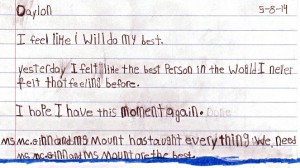 Daylon 5-8-14
I feel like I will do my best.
yesterday I felt like the best Person in the World I never
felt that feeling before.
I hope I have this moment again.
ms.mc.ginn and ms mount has taught everything we need
ms.mc.ginn and ms mount are the best.